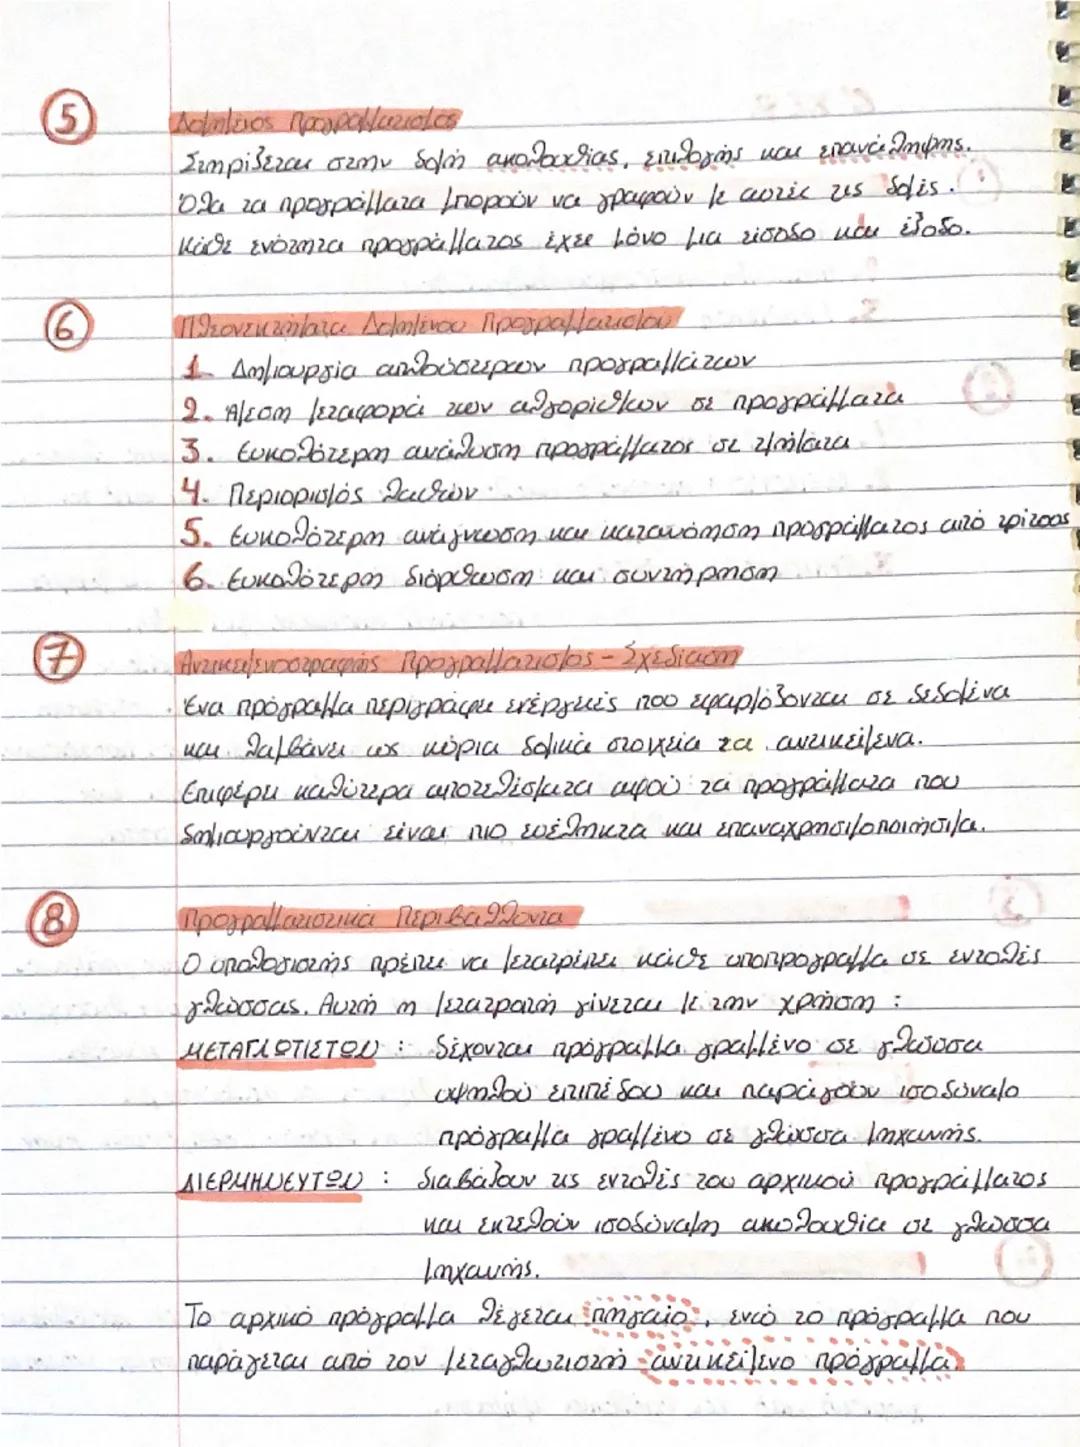 5 Δομημένος Προγραμματισμός
Στηρίζεται στην δομή ακολουθίας, επιλογής και επανάληψης.
Όλα τα προγράμματα μπορούν να γραφούν με αυτές τις δομές.
Κάθε ενότητα προγράμματος έχει μόνο μια είσοδο και έξοδο.
6 Πλεονεκτήματα Δομημένου Προγραμματισμού
1. Δημιουργία απλούστερων προγραμμάτων
2. Άμεση μεταφορά των αλγορίθμων σε προγράμματα
3. Ευκολότερη ανάλυση προγράμματος σε τμήματα
4. Περιορισμός λαθών
5. Ευκολότερη ανάγνωση και κατανόηση προγράμματος από τρίτους
6. Ευκολότερη διόρθωση και συντήρηση
7 Αντικειμενοστραφής Προγραμματισμός - Σχεδίαση
Ένα πρόγραμμα περιγράφει ενέργειες που εφαρμόζονται σε δεδομένα
και λαμβάνει ως κύρια δομικά στοιχεία τα αντικείμενα.
Επιφέρει καλύτερα αποτελέσματα αφού τα προγράμματα που
δημιουργούνται είναι πιο ευέλικτα και επαναχρησιμοποιήσιμα.
8 Προγραμματιστικά Περιβάλλοντα
Ο υπολογιστής πρέπει να μετατρέπει κάθε υποπρόγραμμα σε εντολές
γλώσσας. Αυτή η μετατροπή γίνεται με την χρήση :
ΜΕΤΑΓΛΩΤΙΣΤΩΝ : δέχονται πρόγραμμα γραμμένο σε γλώσσα
υψηλού επιπέδου και παράγουν ισοδύναμο
πρόγραμμα γραμμένο σε γλώσσα μηχανής.
ΔΙΕΡΜΗΝΕΥΤΩΝ : διαβάζουν τις εντολές του αρχικού προγράμματος
και εκτελούν ισοδύναμη ακολουθία σε γλώσσα
μηχανής.
Το αρχικό πρόγραμμα λέγεται πηγαίο, ενώ το πρόγραμμα που
παράγεται από τον μεταγλωτιστή αντικείμενο πρόγραμμα.